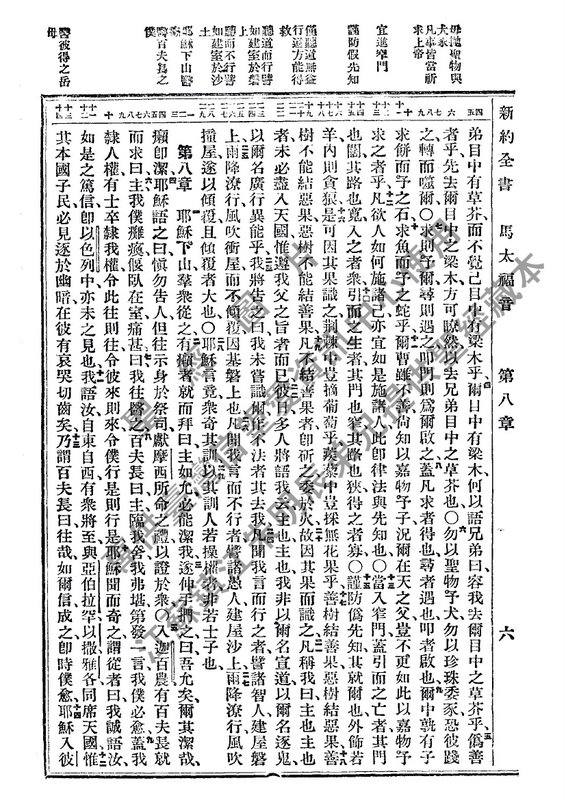 毋拋聖物與
犬豕
凡事皆當祈
求上帝
宜進窄門
謹防假先知
僅聽道無益
行道方能得
救
聽道而行譬
如建室於磐
聽而不行譬
如建室於沙
土
耶穌下山醫
癩
醫百夫長之
僕
醫彼得之岳
母
新約全書 馬太福音 第八章 六
弟目中有草芥而不覺己目中有梁木乎爾目中有梁木何以語兄弟曰容我去爾目中之草芥乎僞善
者乎先去爾目中之梁木方可瞭然以去兄弟目中之草芥也〇勿以聖物予犬勿以珍珠委豕恐彼踐
之轉而噬爾〇求則予爾尋則遇之叩門則爲爾啟之蓋凡求者得也尋者遇也叩者啟也爾中孰有子
求餅而予之石求魚而予之蛇乎爾曹雖不善尚知以嘉物予子況爾在天之父豈不更如此以嘉物予
求之者乎凡欲人如何施諸己亦宜如是施諸人此即律法與先知也〇當入窄門蓋引而之亡者其門
也闊其路也寬入之者衆引而之生者其門也窄其路也狹得之者寡〇謹防僞先知其就爾也外飾若
羊內則貪狼是可因其果識之荊棘中豈摘葡萄乎蒺藜中豈採無花果乎善樹結善果惡樹結惡果善
樹不能結惡果惡樹不能結善果凡不結善果者卽斫之委於火故因其果而識之凡稱我曰主也主也
者未必盡入天國惟遵我父之旨者而已彼日多人將語我云主也主也我非以爾名宣道以爾名逐鬼
以爾名廣行異能乎我將告之曰我未嘗識爾作不法者其去我凡聞我言而行之者譬諸智人建屋磐
上雨降潦行風吹衝屋而不傾覆因基磐上也凡聞我言而不行者譬諸愚人建屋沙上雨降潦行風吹
撞屋遂以傾覆且傾覆者大也〇耶穌言竟衆奇其訓以其訓人若操權者非若士子也
第八章 耶穌下山羣衆從之有癩者就而拜曰主如允必能潔我遂伸手捫之曰吾允矣爾其潔哉
癩卽潔耶穌語之曰愼勿告人但往示身於祭司獻摩西所命之禮以證於衆〇入迦百農有百夫長就
而求曰主我僕癱瘓偃臥在室痛甚曰我往醫之百夫長曰主臨我舍我弗堪第發一言我僕必愈蓋我
隸人權有士卒隸我權令此往則往令彼來則來令僕行是則行是耶穌聞而奇之謂從者曰我誠語汝
如是之篤信卽以色列中亦未之見也我語汝自東自西有衆將至與亞伯拉罕以撒雅各同席天國惟
其本國子民必見逐於幽暗在彼有哀哭切齒矣乃謂百夫長曰往哉如爾信成之卽時僕愈耶穌入彼